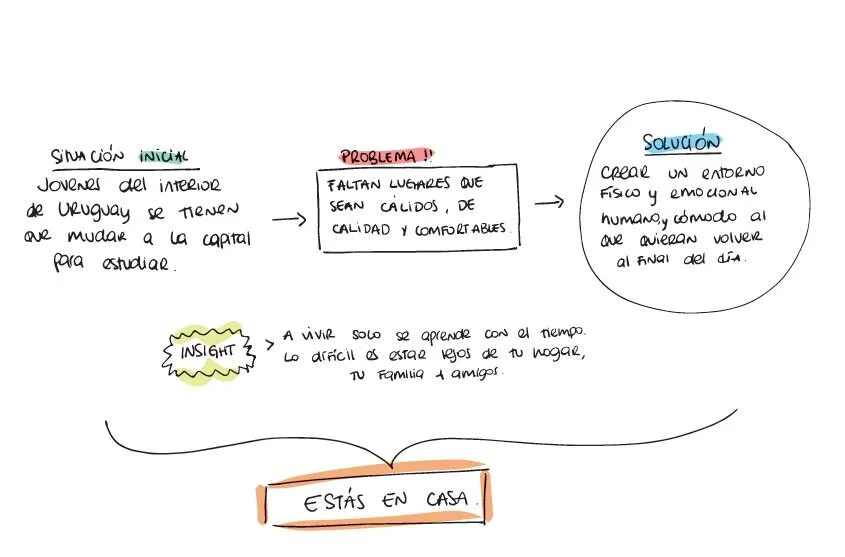 SITUACIÓN INICIAL
JOVENES del INTERIOR
de URUGUAY se TIENEN
que mudar a la capital
para estudiar.
PROBLEMA !!
FALTAN LUGARES QUE
SEAN CÁLIDOS, DE
CALIDAD Y COMFORTABLES.
SOLUCIÓN
CREAR UN ENTORNO
FÍSICO y EMOCIONAL
humano, y cómodo al
que quieran volver
al final del día.
INSIGHT
A vivir solo se aprende con el tiempo.
Lo difícil es estar lejos de tu hogar,
tu familia + amigos.
ESTÁS EN CASA.